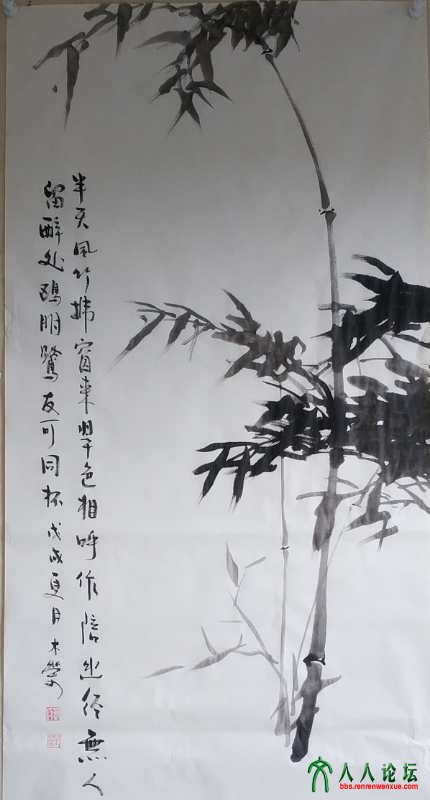 半天風竹掃窗来野色相呼作陪幽徑無人
留醉处鷗朋鷺友可同杯 戊戌夏月木榮
人人论坛
bbs.renrenwenxue.com